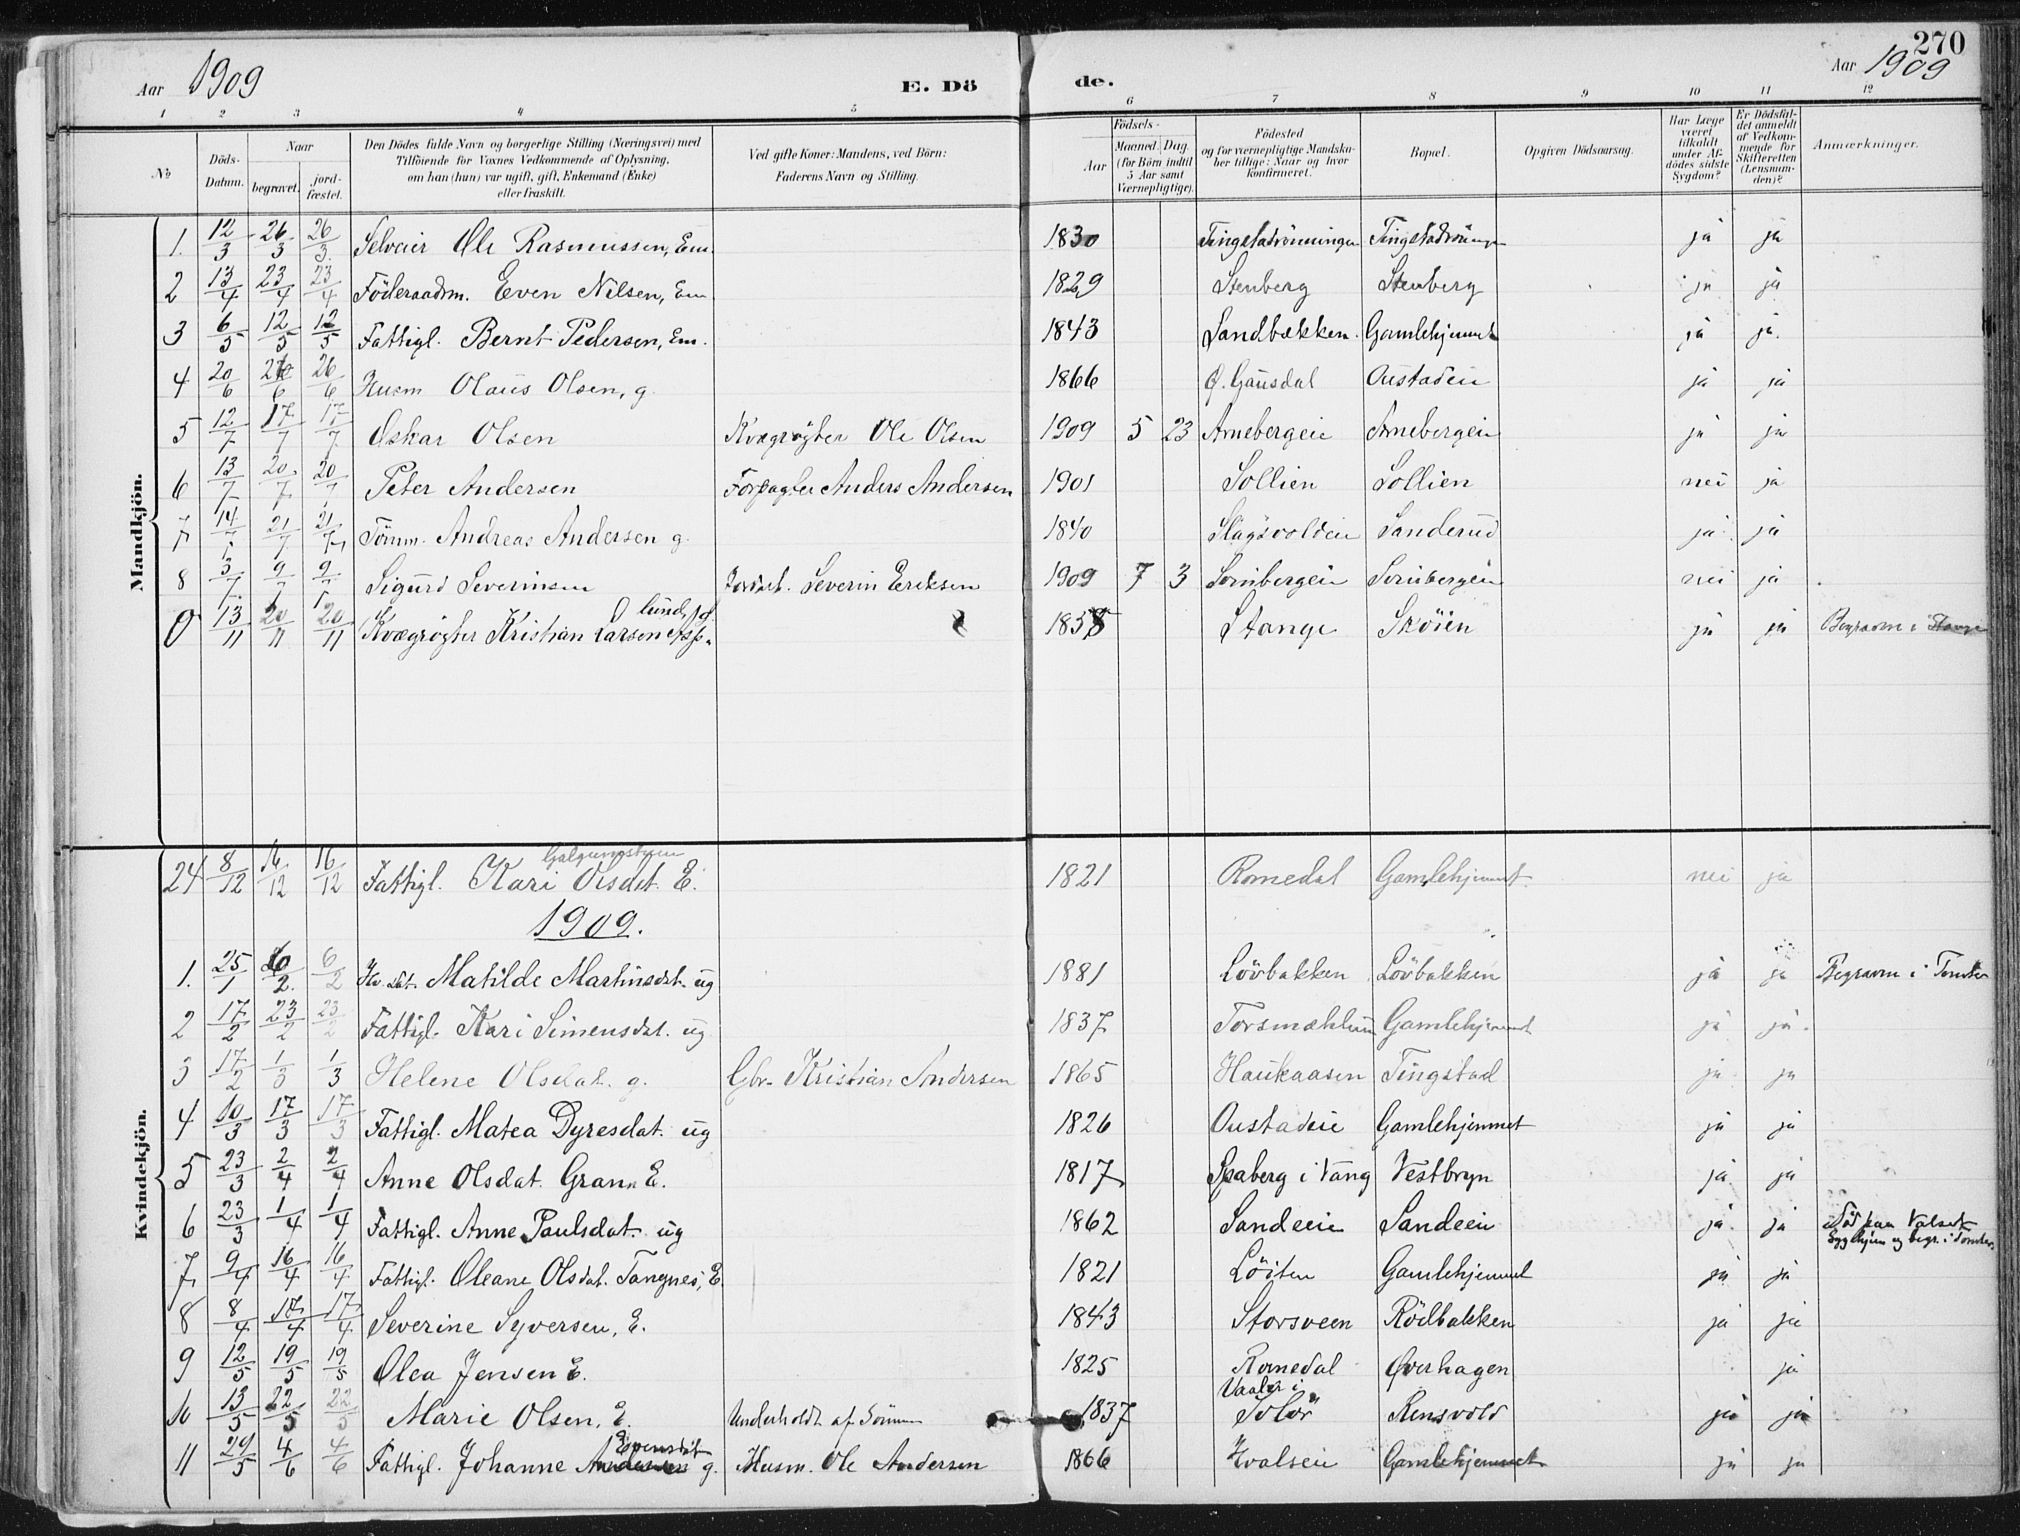 270
Aar 1909 E. Dö de. Aar 1909
1 2 3 4 5 6 7 8 9 10 11 12
No Döds-Datum. Naar begravet. jord-fæstet. Den Dödes fulde Navn og borgerlige Stilling (Næringsvei) med Tilföiende for Voxnes Vedkommende af Oplysning, om han (hun) var ugift, gift, Enkemand (Enke) eller fraskilt. Ved gifte Koner: Mandens, ved Börn: Faderens Navn og Stilling. Födsels- Aar Maaned. Dag. (for Börn indtil 5 Aar samt Værnepligtige). Födested og for værnepligtige Mandskaber tillige: Naar og hvor konfirmeret. Bopæl. Opgiven Dödsaarsag. Har Læge været tilkaldt under Afdödes sidste Sygdom? Er Dödsfaldet anmeldt af Vedkommende for Skifteretten (Lensmanden)? Anmærkninger.
Mandkjön.
1. 12/3 26/3 26/3. Selveier Ole Rasmussen, Em. 1830 Tingstadrönningen ja ja
2 13/4 23/4 23/4 Föderaadsm. Even Nilsen, Em. 1829 Stenberg Stenberg ja ja
3 6/5 12/5 12/5 Fattigl. Bernt Pedersen, Em. 1843 Sandbækken. Gamlehjemmet ja ja.
4 20/6 26/6 26/6 Husm Olaus Olsen, g. 1866 Ö. Gausdal Oustadeie ja ja
5 12/7 17/7 17/7 Oskar Olsen Kvægrögter Ole Olsen 1909 5 23 Arnebergeie Arnebergeie ja ja
6 13/7 20/7 20/7 Peter Andersen Forpagter Anders Andersen 1901 Sollien Sollien nei ja
7 14/7 21/7 21/7 Tömm. Andreas Andersen g. 1840 Slagsvoldeie Sanderud ja ja
8 3/7. 9/7 9/7 Sigurd Severinsen Severin Eriksen 1909 7 3 nei ja
9 13/11 20/11 20/11 Kvægrögter Kristian Larsen 1858 Stange Sköien ja ja Begraven i Stange
Kvindekjön.
24 8/12 16/12 16/12 Fattigl. Kari Olsdat. E. 1821 Romedal Gamlehjemmet nei ja
1909.
1. 25/1 6/2. 6/2 Matilde Martinsdat. ug 1881 Lövbakken Lövbakken ja ja Begraven i Tomter
2 17/2 23/2 23/2 Fattigl. Kari Simensdat. ug 1837 Gamlehjemmet ja ja.
3 17/2 1/3 1/3 Helene Olsdat. g. Gbr. Kristian Andersen 1865 Haukaasen Tingstad ja ja
4 10/3 17/3 17/3 Fattigl. Matea Dyresdat. ug 1826 Oustadeie Gamlehjemmet ja ja
5 23/3 2/4 2/4 Anne Olsdat. Gran, E. 1817 Spaberg i Vang Vestbryn ja ja
6 23/3 1/4 1/4 Fattigl. Anne Paulsdat. ug 1862 Sandeeie Sandeeie ja ja Död paa Valset Sygehjem og begr. i Tomter
7 9/4 16/4 16/4 Fattigl. Oleane Olsdat. Tangnes, E. 1821 Löiten Gamlehjemmet ja ja
8 8/4 17/4 17/4 Severine Syversen, E. 1843 Storsveen Rödbakken ja ja
9 12/5 19/5 19/5 Olea Jensen E. 1825 Romedal Överhagen ja
10 13/5 22/5 22/5 Marie Olsen, E. Underholdt af Sönnen 1837 Vaaler i Solör Rensvold ja ja
11 29/5 4/6 4/6 Fattigl. Johanne Evensdat g. Husm. Ole Andersen 1866 Hvalseie Gamlehjemmet ja ja